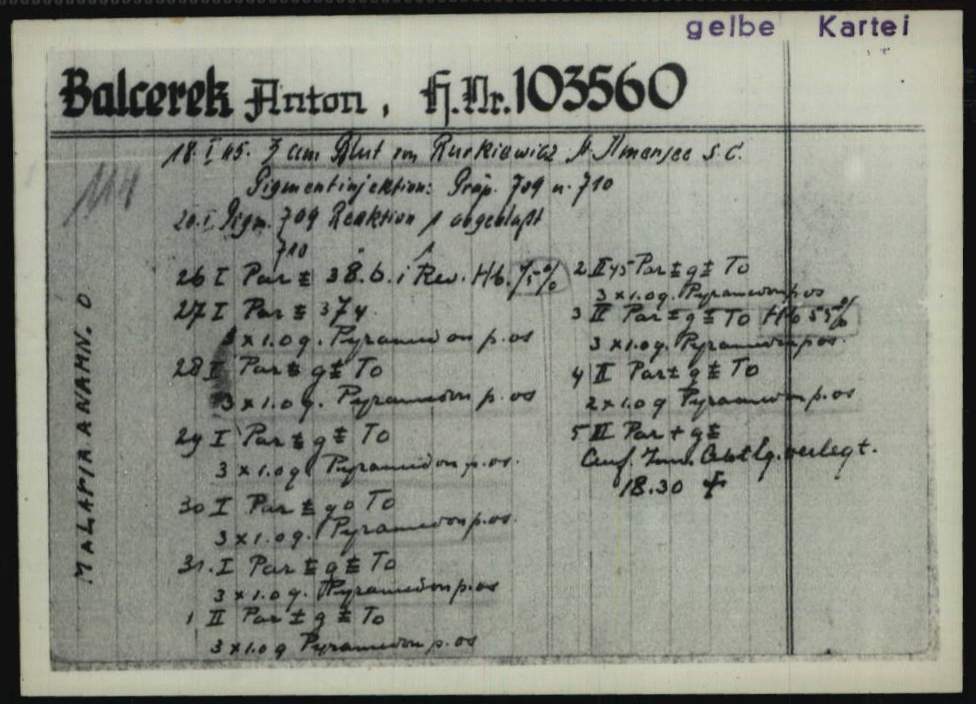 gelbe Kartei
Balcerek Anton, H.Nr. 103560
18. I 45. 3 ccm Blut von St. Ilmensee s.c.
Pigmentinjektion: Präp. 709 u. 710
20.I Pigm. 709 Reaktion
710
114
MALARIA ANAMN. O
26 I Par ± 38.6. i Rev. Hb. 75%
27 I Par ± 37 4.
3 x 1.0 g. Pyramidon p. os
28 I Par ± g ± To
3 x 1.0 g. Pyramidon p. os
29 I Par ± g ± To
3 x 1.0 g Pyramidon p. os.
30 I Par ± g o To
3 x 1.0 g. Pyramidon p. os
31. I Par ± g ± To
3 x 1.0 g. Pyramidon p. os
1 II Par ± g ± To
3 x 1.0 g Pyramidon p. os
2 II 45 Par ± g ± To
3 x 1.0 g. Pyramidon p. os
3 II Par ± g ± To Hb 55%
3 x 1.0 g. Pyramidon p. os.
4 II Par ± g ± To
2 x 1.0 g Pyramidon p. os
5 II Par + g ±
Auf. Inn. Abtlg. verlegt.
18.30 ✝